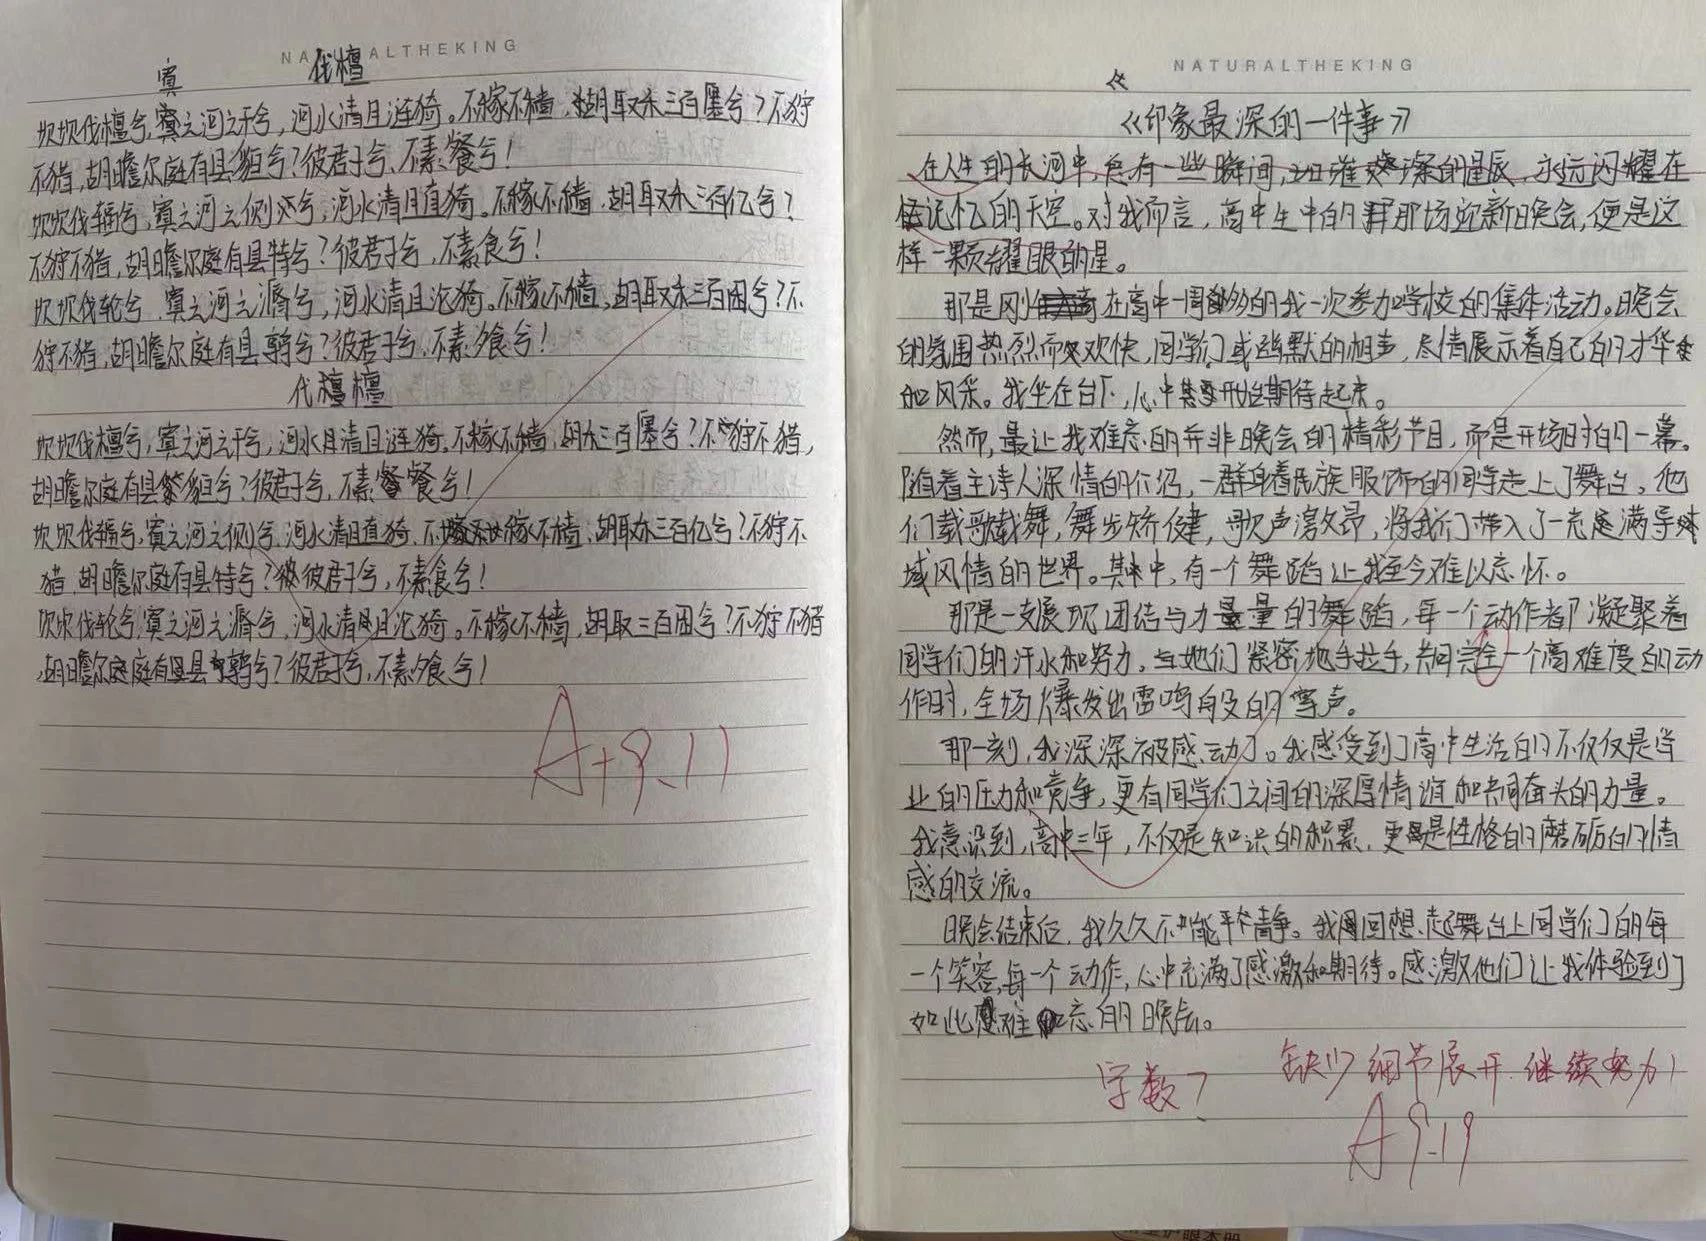 NATURALTHEKING
寘
伐檀
坎坎伐檀兮,寘之河之干兮,河水清且涟猗。不稼不穑,胡取禾三百廛兮?不狩
不猎,胡瞻尔庭有县貆兮?彼君子兮,不素餐兮!
坎坎伐辐兮,寘之河之侧兮,河水清且直猗。不稼不穑,胡取禾三百亿兮?
不狩不猎,胡瞻尔庭有县特兮?彼君子兮,不素食兮!
坎坎伐轮兮,寘之河之漘兮,河水清且沦猗。不稼不穑,胡取禾三百囷兮?不
狩不猎,胡瞻尔庭有县鹑兮?彼君子兮,不素飧兮!
伐檀檀
坎坎伐檀兮,寘之河之干兮,河水且清且涟猗。不稼不穑,胡禾三百廛兮?不狩不猎,
胡瞻尔庭有县貆兮?彼君子兮,不素餐餐兮!
坎坎伐辐兮,寘之河之侧兮,河水清且直猗,不稼不穑,胡取禾三百亿兮?不狩不
猎,胡瞻尔庭有县特兮?彼君子兮,不素食兮!
坎坎伐轮兮,寘之河之漘兮,河水清且沦猗。不稼不穑,胡取三百囷兮?不狩不猎
胡瞻尔庭庭有县鹑兮?彼君子兮,不素飧兮!
A+ 9.11
NATURALTHEKING
《
《印象最深的一件事》
在人生的长河中,总有一些瞬间,如璀璨的星辰,永远闪耀在
记忆的天空。对我而言,高中生中的那场迎新晚会,便是这
样一颗耀眼的星。
那是刚在高中一周的我一次参加学校的集体活动。晚会
的氛围热烈而欢快,同学们或幽默的相声,尽情展示着自己的才华
和风采。我坐在台下,心中开始期待起来。
然而,最让我难忘的并非晚会的精彩节目,而是开场时的一幕。
随着主诗人深情的介绍,一群身着民族服饰的同学走上了舞台。他
们载歌载舞,舞步矫健,歌声激昂,将我们带入了一充满异
域风情的世界。其中,有一个舞蹈让我至今难以忘怀。
那是一支展现团结与力量的舞蹈,每一个动作者都凝聚着
同学们的汗水和努力。当她们紧密地手拉手,共同完全一个高难度的动
作时,全场爆发出雷鸣般的掌声。
那一刻,我深深被感动了。我感受到了高中生活的不仅仅是学
业的压力和竞争,更有同学们之间的深厚情谊和共同奋头的力量。
我意识到,高中三年,不仅是知识的积累,更是性格的磨砺的情
感的交流。
晚会结束后,我久久不能平静。我回想起舞台上同学们的每
一个笑容,每一个动作,心中充满了感激和期待。感激他们让我体验到了
如此难忘的晚会。
字数?
缺少细节展开,继续努力!
A 9.19